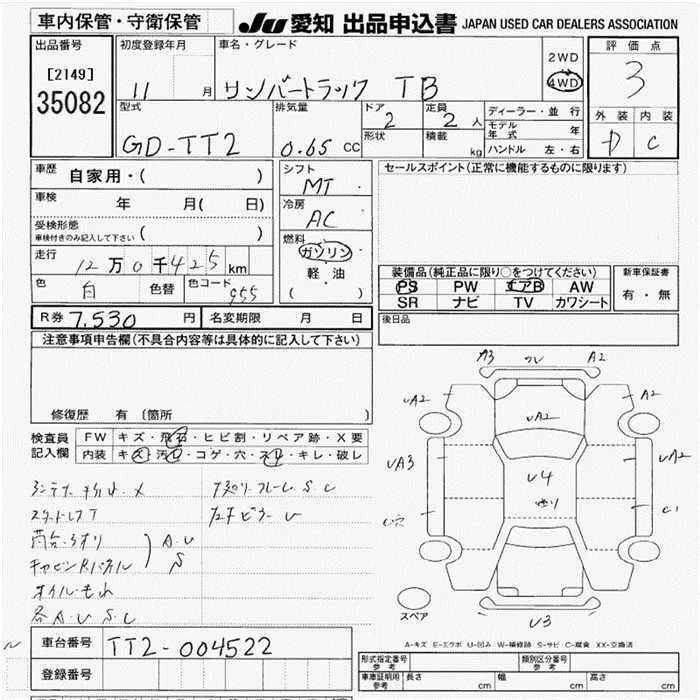 車内保管・守衛保管
JU 愛知 出品申込書 JAPAN USED CAR DEALERS ASSOCIATION
出品番号
[2149]
35082
初度登録年月
11 月
車名・グレード
サンバートラック TB
2WD
4WD
評価点
3
外装 内装
D C
型式
GD-TT2
排気量
0.65 CC
ドア
2
形状
定員
2 人
積載
kg
ディーラー・並行
モデル年式 年
ハンドル 左・右
車歴
自家用・( )
車検 年 月( 日)
受検形態
車検付きのみ記入して下さい ( )
走行 12万0千425 km
色 白 色替 色コード 955
シフト
MT
冷房
AC
燃料
ガソリン
軽油
( )
セールスポイント(正常に機能するものに限ります)
装備品(純正品に限り○をつけてください)
PS PW エアB AW
SR ナビ TV カワシート
新車保証書
有・無
R券 7,530 円 名変期限 月 日
後日品
注意事項申告欄(不具合内容等は具体的に記入して下さい)
修復歴 有 〔箇所 〕
検査員記入欄
FW キズ・飛石・ヒビ割・リペア跡・X要
内装 キズ・汚レ・コゲ・穴・スレ・キレ・破レ
A3 A2
UA2 UA2 A2
UA3 U4 UA2
C穴 C1
スペア
U3
オイルもれ
各A.U S.C
A.U
S
A-キズ E-エクボ U-凹み W-補修跡 S-サビ C-腐食 XX-交換済
車台番号 TT2-004522
登録番号
形式指定番号 参考 類別区分番号 参考
車庫証明用 参考 長さ cm 幅 cm 高さ cm